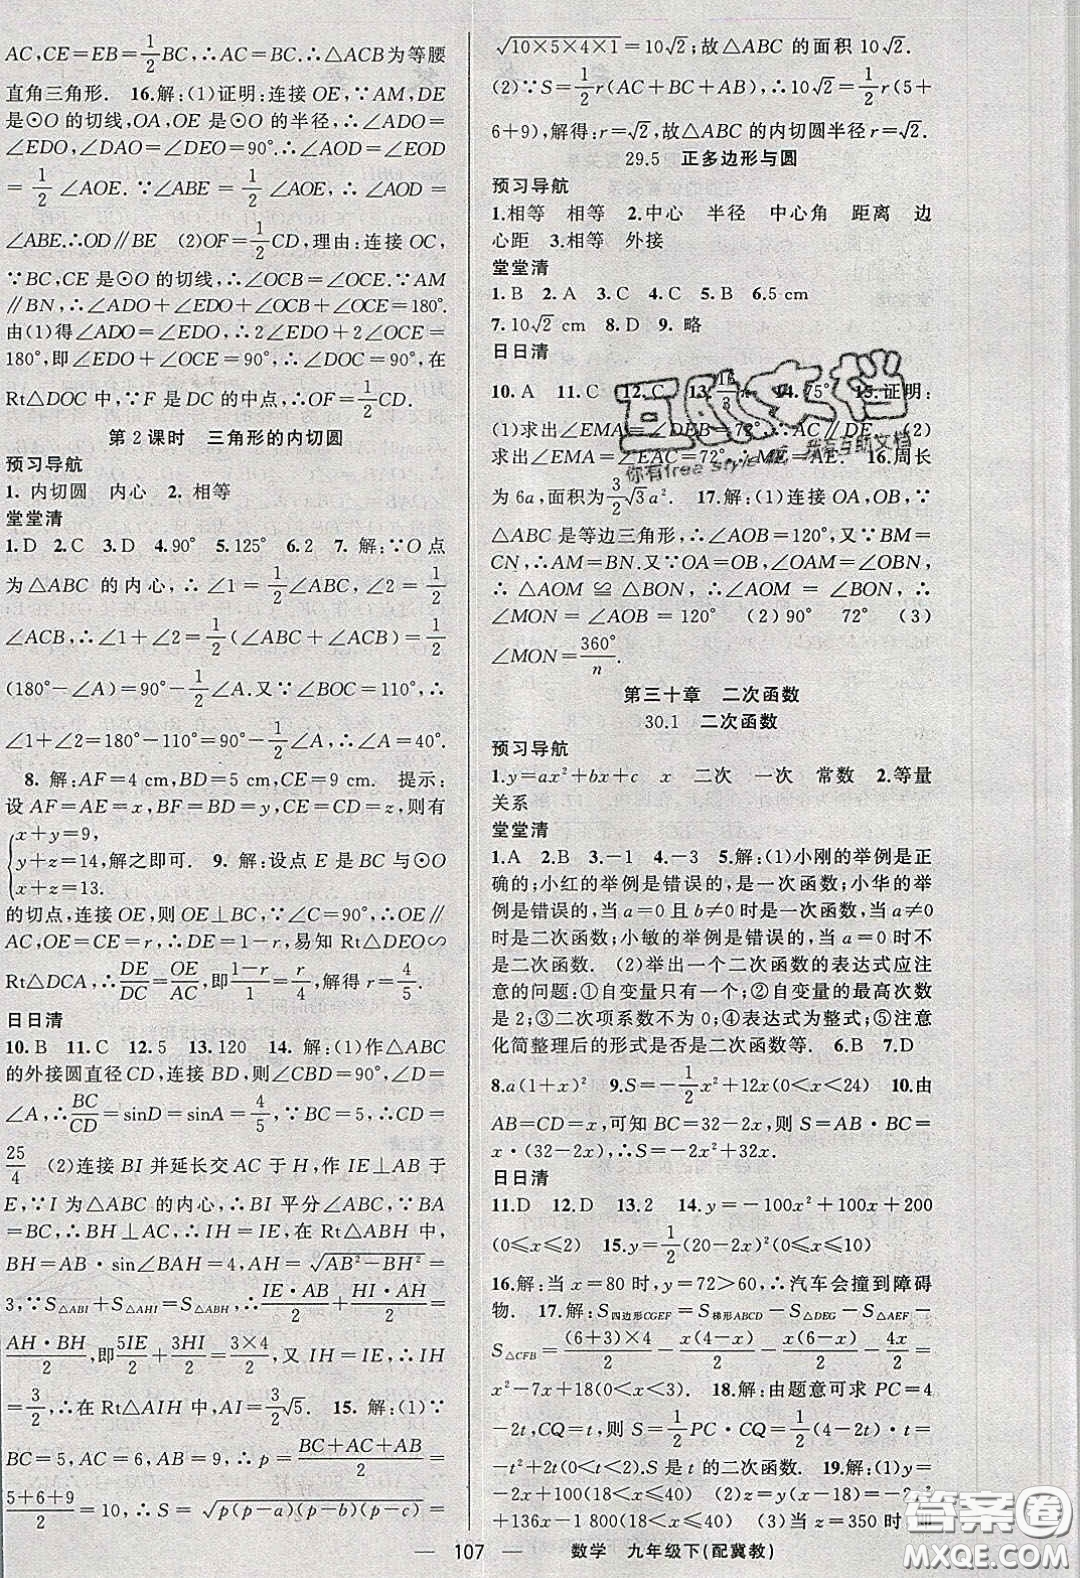 AC,CE=EB=1/2BC,∴AC=BC.∴△ACB为等腰
直角三角形. 16.解:(1)证明:连接OE,∵AM,DE
是⊙O的切线,OA,OE是⊙O的半径,∴∠ADO=
∠EDO,∠DAO=∠DEO=90°.∴∠AOD=∠EOD
=1/2∠AOE.∵∠ABE=1/2∠AOE,∴∠AOD=
∠ABE.∴OD∥BE (2)OF=1/2CD,理由:连接OC,
∵BC,CE是⊙O的切线,∴∠OCB=∠OCE.∵AM
∥BN,∴∠ADO+∠EDO+∠OCB+∠OCE=180°.
由(1)得∠ADO=∠EDO,∴2∠EDO+2∠OCE=
180°,即∠EDO+∠OCE=90°,∴∠DOC=90°,在
Rt△DOC中,∵F是DC的中点,∴OF=1/2CD.
第2课时 三角形的内切圆
预习导航
1.内切圆 内心 2.相等
堂堂清
1.D 2.C 3.D 4.90° 5.125° 6.2 7.解:∵O点
为△ABC的内心,∴∠1=1/2∠ABC,∠2=1/2
∠ACB,∴∠1+∠2=1/2(∠ABC+∠ACB)=1/2
(180°-∠A)=90°-1/2∠A.又∵∠BOC=110°,∴
∠1+∠2=180°-110°=90°-1/2∠A,∴∠A=40°.
8.解:AF=4 cm,BD=5 cm,CE=9 cm. 提示:
设AF=AE=x,BF=BD=y,CE=CD=z,则有
{x+y=9,
y+z=14,解之即可. 9.解:设点E是BC与⊙O
x+z=13.
的切点,连接OE,则OE⊥BC,∵∠C=90°,∴OE∥
AC,OE=CE=r,∴DE=1-r,易知Rt△DEO∽
Rt△DCA,∴DE/DC=OE/AC,即(1-r)/1=r/4,解得r=4/5.
日日清
10.B 11.C 12.5 13.120 14.解:(1)作△ABC
的外接圆直径CD,连接BD,则∠CBD=90°,∠D=
∠A,∴BC/CD=sinD=sinA=4/5,∵BC=5,∴CD=
25/4 (2)连接BI并延长交AC于H,作IE⊥AB于
E,∵I为△ABC的内心,∴BI平分∠ABC,∵BA
=BC,∴BH⊥AC,∴IH=IE,在Rt△ABH中,
BH=AB·sin∠BAH=4,AH=√(AB²-BH²)=
3,∵S△ABI+S△AHI=S△ABH,∴IE·AB/2+HI·AH/2=
AH·BH/2,即5IE/2+3HI/2=3×4/2,又IH=IE,∴IH
=3/2,∴在Rt△AIH中,AI=3/2√5. 15.解:(1)∵
BC=5,AC=6,AB=9,∴p=(BC+AC+AB)/2=
(5+6+9)/2=10,∴S=√(p(p-a)(p-b)(p-c))=
√(10×5×4×1)=10√2;故△ABC的面积10√2.
(2)∵S=1/2r(AC+BC+AB),∴10√2=1/2r(5+
6+9),解得:r=√2,故△ABC的内切圆半径r=√2.
29.5 正多边形与圆
预习导航
1.相等 相等 2.中心 半径 中心角 距离 边
心距 3.相等 外接
堂堂清
1.B 2.A 3.C 4.C 5.B 6.5 cm
7.10√2 cm 8.D 9.略
日日清
10.A 11.C 12.C 13. 14.75° 15.证明:
(1)求出∠EMA=∠BAC=72°,∴AC∥DE. (2)
求出∠EMA=∠EAC=72°,∴ME=AE. 16.周长
为6a,面积为3/2√3a². 17.解:(1)连接OA,OB,∵
△ABC是等边三角形,∴∠AOB=120°,又∵BM=
CN,∴AM=BN.又∵OA=OB,∠OAM=∠OBN,
∴△AOM≌△BON,∴∠AOM=∠BON,∴
∠MON=∠AOB=120° (2)90° 72° (3)
∠MON=360°/n.
第三十章 二次函数
30.1 二次函数
预习导航
1.y=ax²+bx+c x 二次 一次 常数 2.等量
关系
堂堂清
1.A 2.B 3.-1 4.-3 5.解:(1)小刚的举例是正
确的;小红的举例是错误的,是一次函数;小华的举
例是错误的,当a=0且b≠0时是一次函数,当a≠0
时是二次函数;小敏的举例是错误的,当a=0时不
是二次函数. (2)举出一个二次函数的表达式应注
意的问题:①自变量只有一个;②自变量的最高次数
是2;③二次项系数不为0;④表达式为整式;⑤注意
化简整理后的形式是否是二次函数等. 6.B 7.D
8.a(1+x)² 9.S=-1/2x²+12x(0<x<24) 10.由
AB=CD=x,可知BC=32-2x,则S=AB·BC=
x·(32-2x),∴S=-2x²+32x.
日日清
11.D 12.D 13.2 14.y=-100x²+100x+200
(0≤x≤2) 15.y=1/2(20-2x)²(0≤x≤10)
16.解:当x=80时,y=72>60,∴汽车会撞到障碍
物. 17.解:S四边形CGEF=S梯形ABCD-S△DEG-S△AEF-
S△CFB=(6+3)×4/2-x(4-x)/2-x(6-x)/2-4x/2=
x²-7x+18(0<x<3). 18.解:由题意可求PC=4
-2t,CQ=t,则S=1/2PC·CQ=1/2(4-2t)·t=
-t²+2t(0≤t≤2).S是t的二次函数. 19.解:(1)y=
-2x+100 (2)z=y(x-18)=-2x²
+136x-1 800(18<x<50) (3)当z=350时,即
107 数学 九年级下(配冀教)
互助文档
你有free style吗,我有互助文档
答案圈